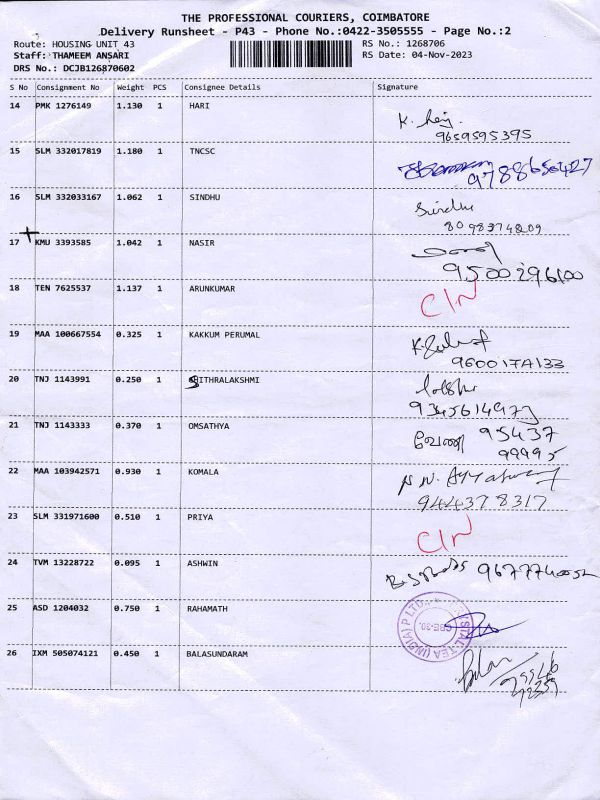 THE PROFESSIONAL COURIERS, COIMBATORE
Delivery Runsheet - P43 - Phone No.:0422-3505555 - Page No.:2
Route: HOUSING UNIT 43 RS No.: 1268706
Staff: THAMEEM ANSARI RS Date: 04-Nov-2023
DRS No.: DCJB126870602
S No Consignment No Weight PCS Consignee Details Signature
14 PMK 1276149 1.130 1 HARI
9659595395
15 SLM 332017819 1.180 1 TNCSC
9788650427
16 SLM 332033167 1.062 1 SINDHU Sindhu
17 KMU 3393585 1.042 1 NASIR
9500296100
18 TEN 7625537 1.137 1 ARUNKUMAR
19 MAA 100667554 0.325 1 KAKKUM PERUMAL
20 TNJ 1143991 0.250 1 SITHRALAKSHMI
21 TNJ 1143333 0.370 1 OMSATHYA வேணி 95437
99995
22 MAA 103942571 0.930 1 KOMALA
9444378317
23 SLM 331971600 0.510 1 PRIYA
24 TVM 13228722 0.095 1 ASHWIN
25 ASD 1204032 0.750 1 RAHAMATH
26 IXM 505074121 0.450 1 BALASUNDARAM